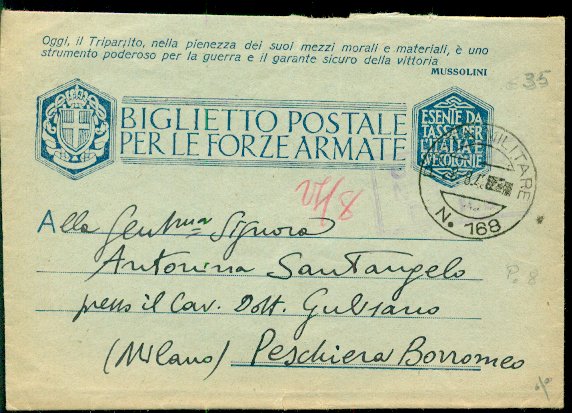 Oggi, il Tripartito, nella pienezza dei suoi mezzi morali e materiali, è uno
strumento poderoso per la guerra e il garante sicuro della vittoria
MUSSOLINI
35
BIGLIETTO POSTALE
PER LE FORZE ARMATE
ESENTE DA
TASSA PER
L'ITALIA
E COLONIE
MILITARE
N. 169
VI/8
Alla Gent.ma Signora
Antonina Santangelo
P. 8
presso il Cav. Dott. Gulisano
(Milano) Peschiera Borromeo